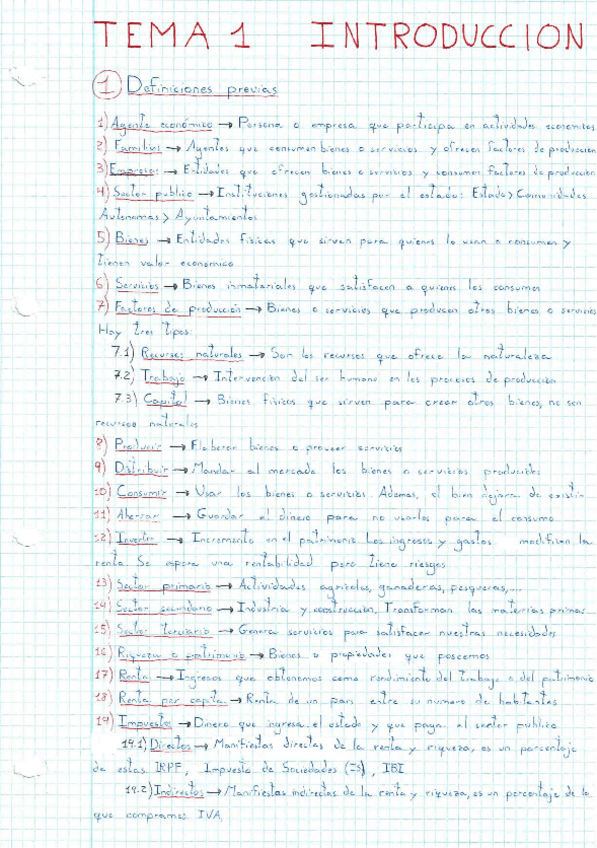 TEMA 1 INTRODUCCION
1 Definiciones previas
1) Agente económico → Persona o empresa que participa en actividades economicas
2) Familias → Agentes que consumen bienes o servicios y ofrecen factores de produccion
3) Empresas → Entidades que ofrecen bienes o servicios y consumen factores de produccion
4) Sector publico → Instituciones gestionadas por el estado: Estado > Comunidades
Autonomas > Ayuntamientos
5) Bienes → Entidades fisicas que sirven para quienes lo usan o consumen y
tienen valor economico
6) Servicios → Bienes inmateriales que satisfacen a quienes los consumen
7) Factores de producción → Bienes o servicios que producen otros bienes o servicios
Hay tres tipos:
7.1) Recursos naturales → Son los recursos que ofrece la naturaleza
7.2) Trabajo → Intervencion del ser humano en los procesos de produccion
7.3) Capital → Bienes fisicos que sirven para crear otros bienes, no son
recursos naturales
8) Producir → Elaborar bienes o proveer servicios
9) Distribuir → Mandar al mercado los bienes o servicios producibles
10) Consumir → Usar los bienes o servicios. Ademas, el bien dejara de existir
11) Ahorrar → Guardar el dinero para no usarlos para el consumo
12) Invertir → Incremento en el patrimonio. Los ingresos y gastos modifican la
renta. Se espera una rentabilidad pero tiene riesgos
13) Sector primario → Actividades agricolas, ganaderas, pesqueras,...
14) Sector secundario → Industria y construccion. Transforman las materias primas
15) Sector terciario → Genera servicios para satisfacer nuestras necesidades
16) Riqueza o patrimonio → Bienes o propiedades que poseemos
17) Renta → Ingresos que obtenemos como rendimiento del trabajo o del patrimonio
18) Renta per capita → Renta de un pais entre su numero de habitantes
19) Impuestos → Dinero que ingresa el estado y que paga al sector publico
19.1) Directos → Manifiestas directas de la renta y riqueza, es un porcentaje
de estas IRPF, Impuesto de Sociedades (IS), IBI
19.2) Indirectos → Manifiestas indirectas de la renta y riqueza, es un porcentaje de lo
que compramos IVA